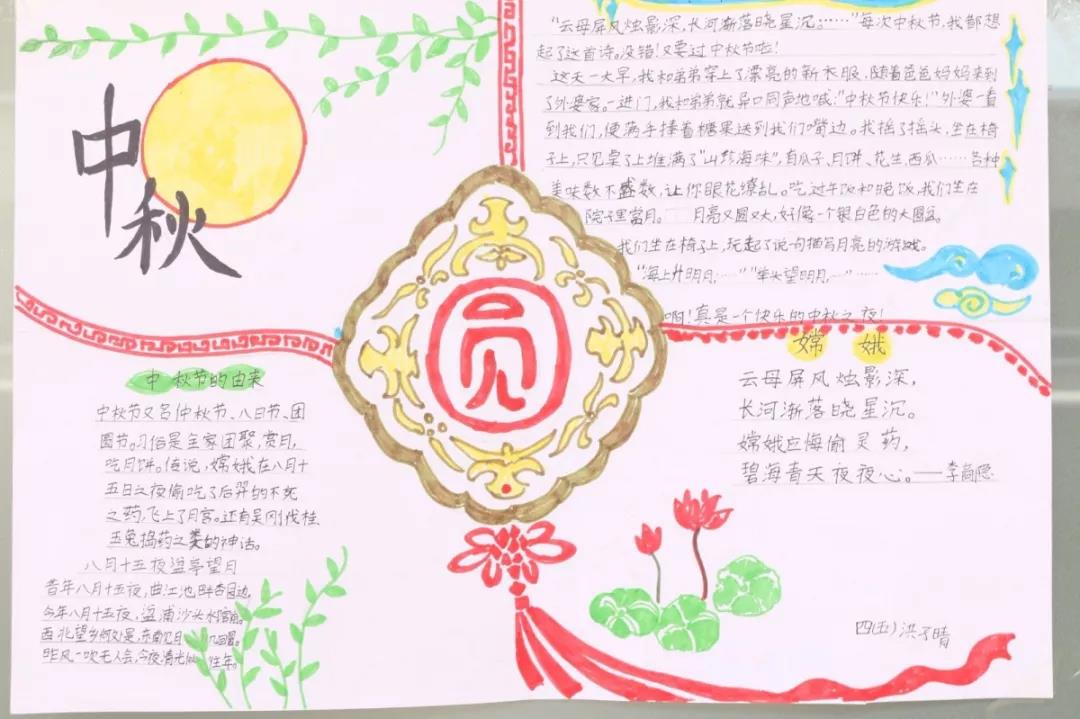 中秋
"云母屏风烛影深,长河渐落晓星沉……"每次中秋节,我都想
起了这首诗。没错!又要过中秋节啦!
这天一大早,我和弟弟穿上了漂亮的新衣服,随着爸爸妈妈来到
了外婆家。一进门,我和弟弟就异口同声地喊:"中秋节快乐!"外婆一看
到我们,便满手捧着糖果送到我们嘴边。我摇了摇头,坐在椅
子上,只见桌子上堆满了"山珍海味",有瓜子、月饼、花生、西瓜……各种
美味数不盛数,让你眼花缭乱。吃过午饭和晚饭,我们坐在
院子里赏月。月亮又圆又大,好像一个银白色的大圆盆。
我们坐在椅子上,玩起了说句描写月亮的游戏。
"海上升明月……""举头望明月……"……
啊!真是一个快乐的中秋之夜!
圆
中秋节的由来
中秋节又名仲秋节、八日节、团
圆节。习俗是全家团聚,赏月,
吃月饼。传说,嫦娥在八月十
五日之夜偷吃了后羿的不死
之药,飞上了月宫。还有吴刚伐桂
玉兔捣药之类的神话。
八月十五夜湓亭望月
昔年八月十五夜,曲江池畔杏园边
今年八月十五夜,湓浦沙头水馆前。
西北望乡何处是,东南见月几回圆。
昨风一吹无人会,今夜清光似往年。
嫦娥
云母屏风烛影深,
长河渐落晓星沉。
嫦娥应悔偷灵药,
碧海青天夜夜心。——李商隐
四(五) 洪子晴